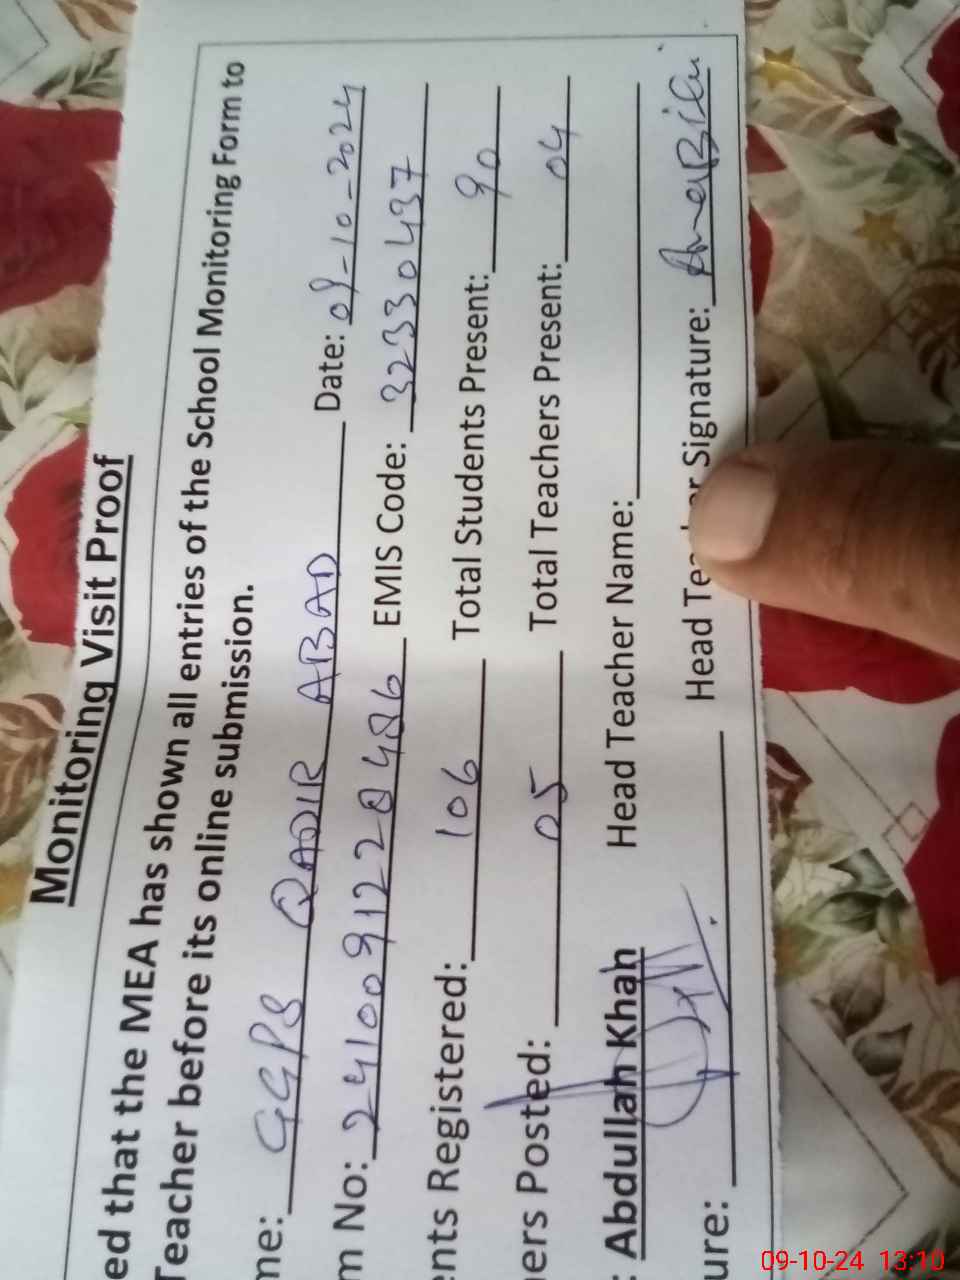 Monitoring Visit Proof
ed that the MEA has shown all entries of the School Monitoring Form to
Teacher before its online submission.
me: GGPS QADIR ABAD Date: 09-10-2024
m No: 2410091228486 EMIS Code: 32330437
ents Registered: 106 Total Students Present: 90
ers Posted: 05 Total Teachers Present: 04
: Abdullah Khan Head Teacher Name:
ure: Head Teacher Signature:
09-10-24 13:10